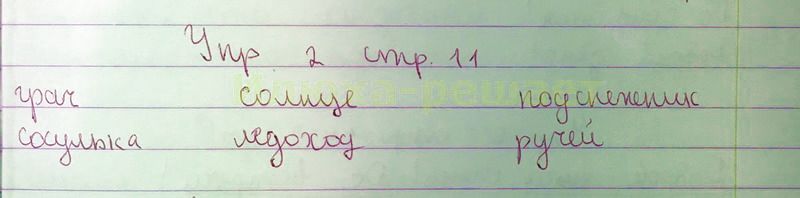 Упр 2 стр. 11
грач солнце подснежник
сосулька ледоход ручей